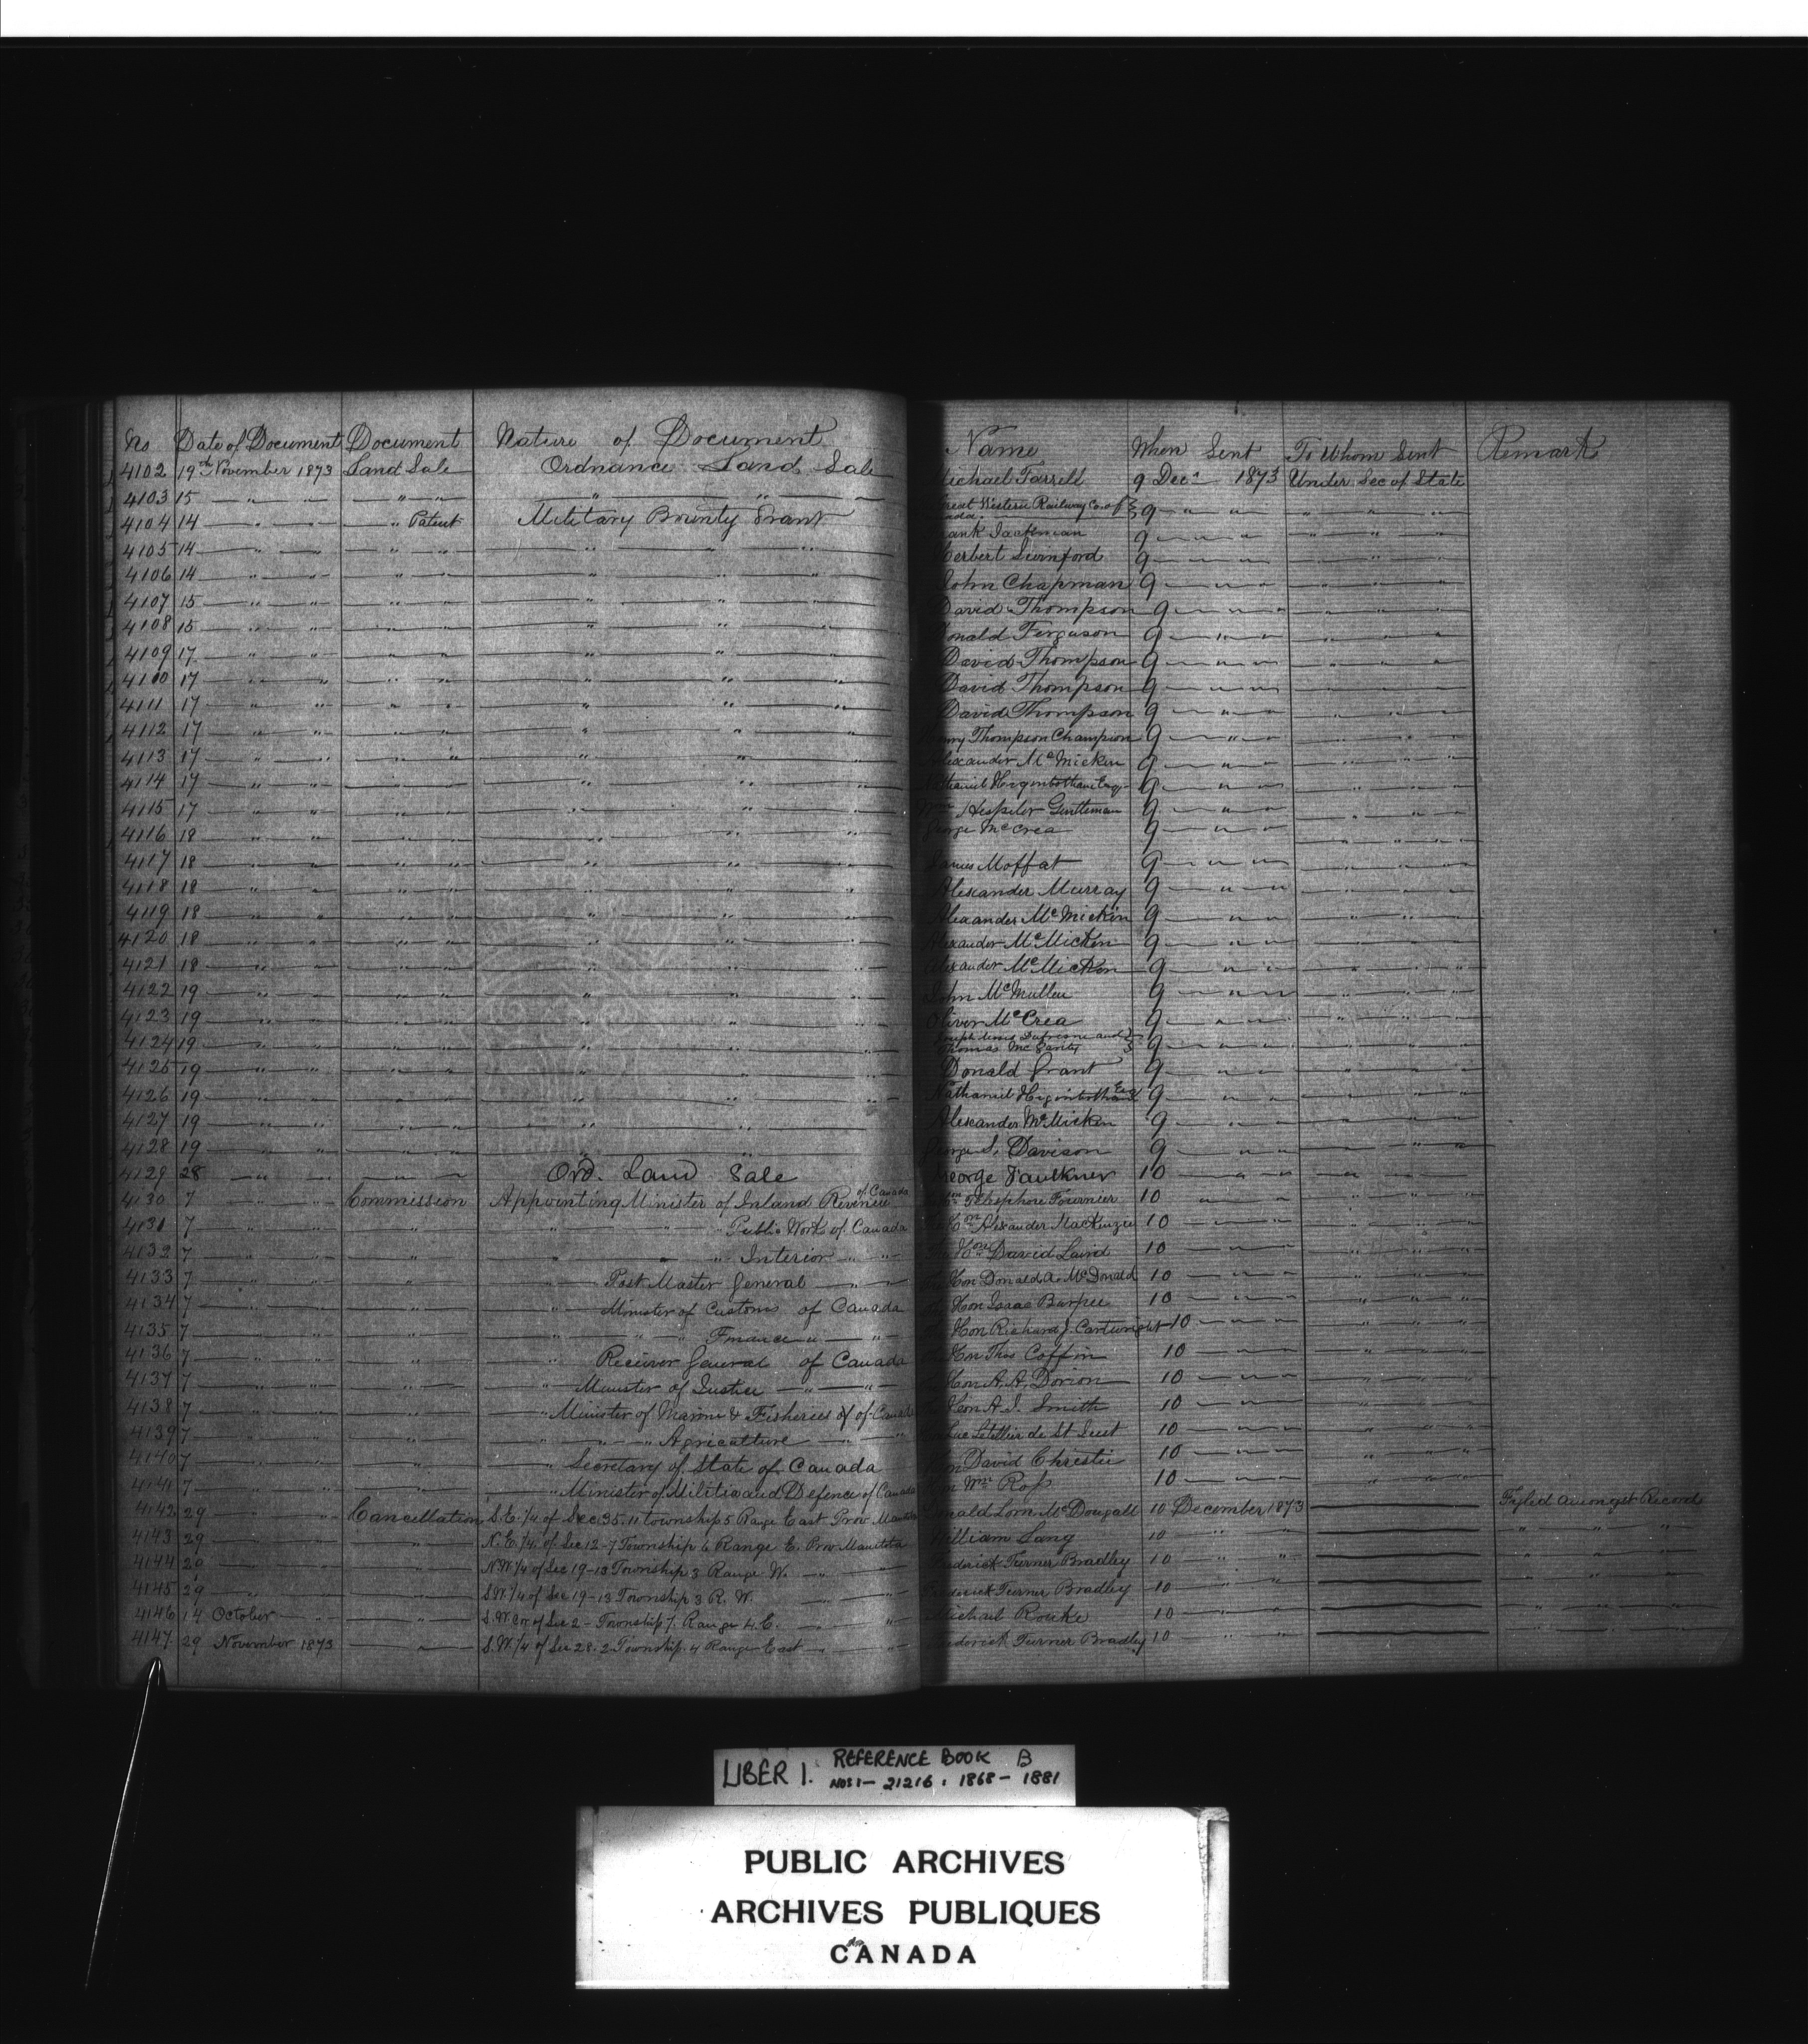 No Date of Document Document Nature of Document Name When Sent To Whom Sent Remark
4102 19th November 1873 Land Sale Ordnance Land Sale Michael Farrell 9 Decr 1873 Under Sec of State
4103 15 " " " " " " Great Western Railway Co. of Canada 9 " " " "
4104 14 " " " Patent Military Bounty Grant Frank Jackman 9 " " " "
4105 14 " " " " " " Herbert Swinford 9 " " " "
4106 14 " " " " " " John Chapman 9 " " " "
4107 15 " " " " " " David Thompson 9 " " " "
4108 15 " " " " " " Donald Ferguson 9 " " " "
4109 17 " " " " " " David Thompson 9 " " " "
4110 17 " " " " " " David Thompson 9 " " " "
4111 17 " " " " " " David Thompson 9 " " " "
4112 17 " " " " " " Henry Thompson Champion 9 " " " "
4113 17 " " " " " " Alexander McMicken 9 " " " "
4114 17 " " " " " " Nathaniel Higinbotham Esq. 9 " " " "
4115 17 " " " " " " Wm Hespeler Gentleman 9 " " " "
4116 18 " " " " " " George McCrea 9 " " " "
4117 18 " " " " " " James Moffat 9 " " " "
4118 18 " " " " " " Alexander Murray 9 " " " "
4119 18 " " " " " " Alexander McMicken 9 " " " "
4120 18 " " " " " " Alexander McMicken 9 " " " "
4121 18 " " " " " " Alexander McMicken 9 " " " "
4122 19 " " " " " " John McMullen 9 " " " "
4123 19 " " " " " " Oliver McCrea 9 " " " "
4124 19 " " " " " " Joseph Dufresne and Thomas McGarity 9 " " " "
4125 19 " " " " " " Donald Grant 9 " " " "
4126 19 " " " " " " Nathaniel Higinbotham Esq 9 " " " "
4127 19 " " " " " " Alexander McMicken 9 " " " "
4128 19 " " " " " " George Davison 9 " " " "
4129 28 " " " " Ord. Land Sale George Faulkner 10 " " " "
4130 7 " " Commission Appointing Minister of Inland Revenue of Canada Hon Telesphore Fournier 10 " " " "
4131 7 " " " " " Public Works of Canada Hon Alexander MacKenzie 10 " " " "
4132 7 " " " " " Interior " " Hon David Laird 10 " " " "
4133 7 " " " " Post Master General " " Hon Donald A. McDonald 10 " " " "
4134 7 " " " " Minister of Customs of Canada Hon Isaac Burpee 10 " " " "
4135 7 " " " " " " Finance " " Hon Richard J. Cartwright 10 " " " "
4136 7 " " " " Receiver General of Canada Hon Thos Coffin 10 " " " "
4137 7 " " " " Minister of Justice " " Hon A. A. Dorion 10 " " " "
4138 7 " " " " Minister of Marine & Fisheries of of Canada Hon A. J. Smith 10 " " " "
4139 7 " " " " " " Agriculture " " Luc Letellier de St Just 10 " " " "
4140 7 " " " " Secretary of State of Canada Hon David Christie 10 " " " "
4141 7 " " " " Minister of Militia and Defence of Canada Hon Wm Ross 10 " " " "
4142 29 " " Cancellation S.E. 1/4 of Sec 35. 11 township 5 Range East Prov Manitoba Donald Lorn McDougall 10 December 1873 Fyled amongst Record
4143 29 " " " N.E. 1/4 of Sec 12-7 Township 6 Range E. Prov Manitoba William Lang 10 " " " " "
4144 29 " " " N.W. 1/4 of Sec 19-13 Township 3 Range W. " " Frederick Turner Bradley 10 " " " " "
4145 29 " " " S.W. 1/4 of Sec 19-13 Township 3 R. W. " " Frederick Turner Bradley 10 " " " " "
4146 14 October " " S.W. of Sec 2 - Township 7. Range 4. E. " " Michael Rourke 10 " " " " "
4147. 29 November 1873 " S.W. 1/4 of Sec 28. 2 Township. 4 Range East " " Frederick Turner Bradley 10 " " " " "
LIBER 1. REFERENCE BOOK B
NOS 1 - 21216 . 1868 - 1881
PUBLIC ARCHIVES
ARCHIVES PUBLIQUES
CANADA